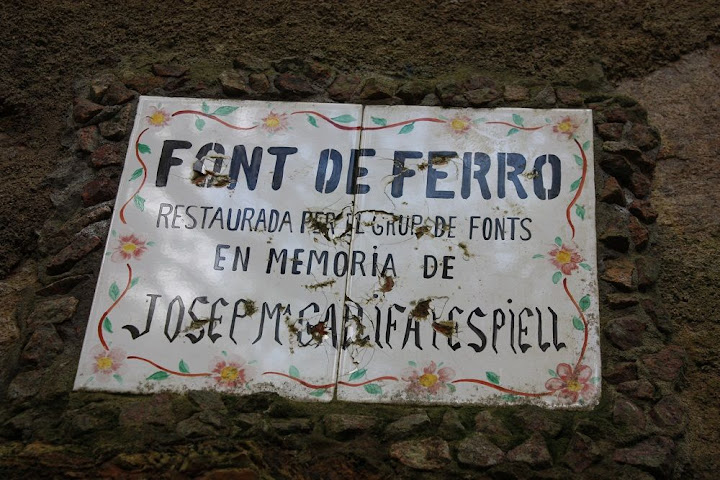 FONT DE FERRO
RESTAURADA PER EL GRUP DE FONTS
EN MEMÒRIA DE
JOSEP Mª ESPIELL